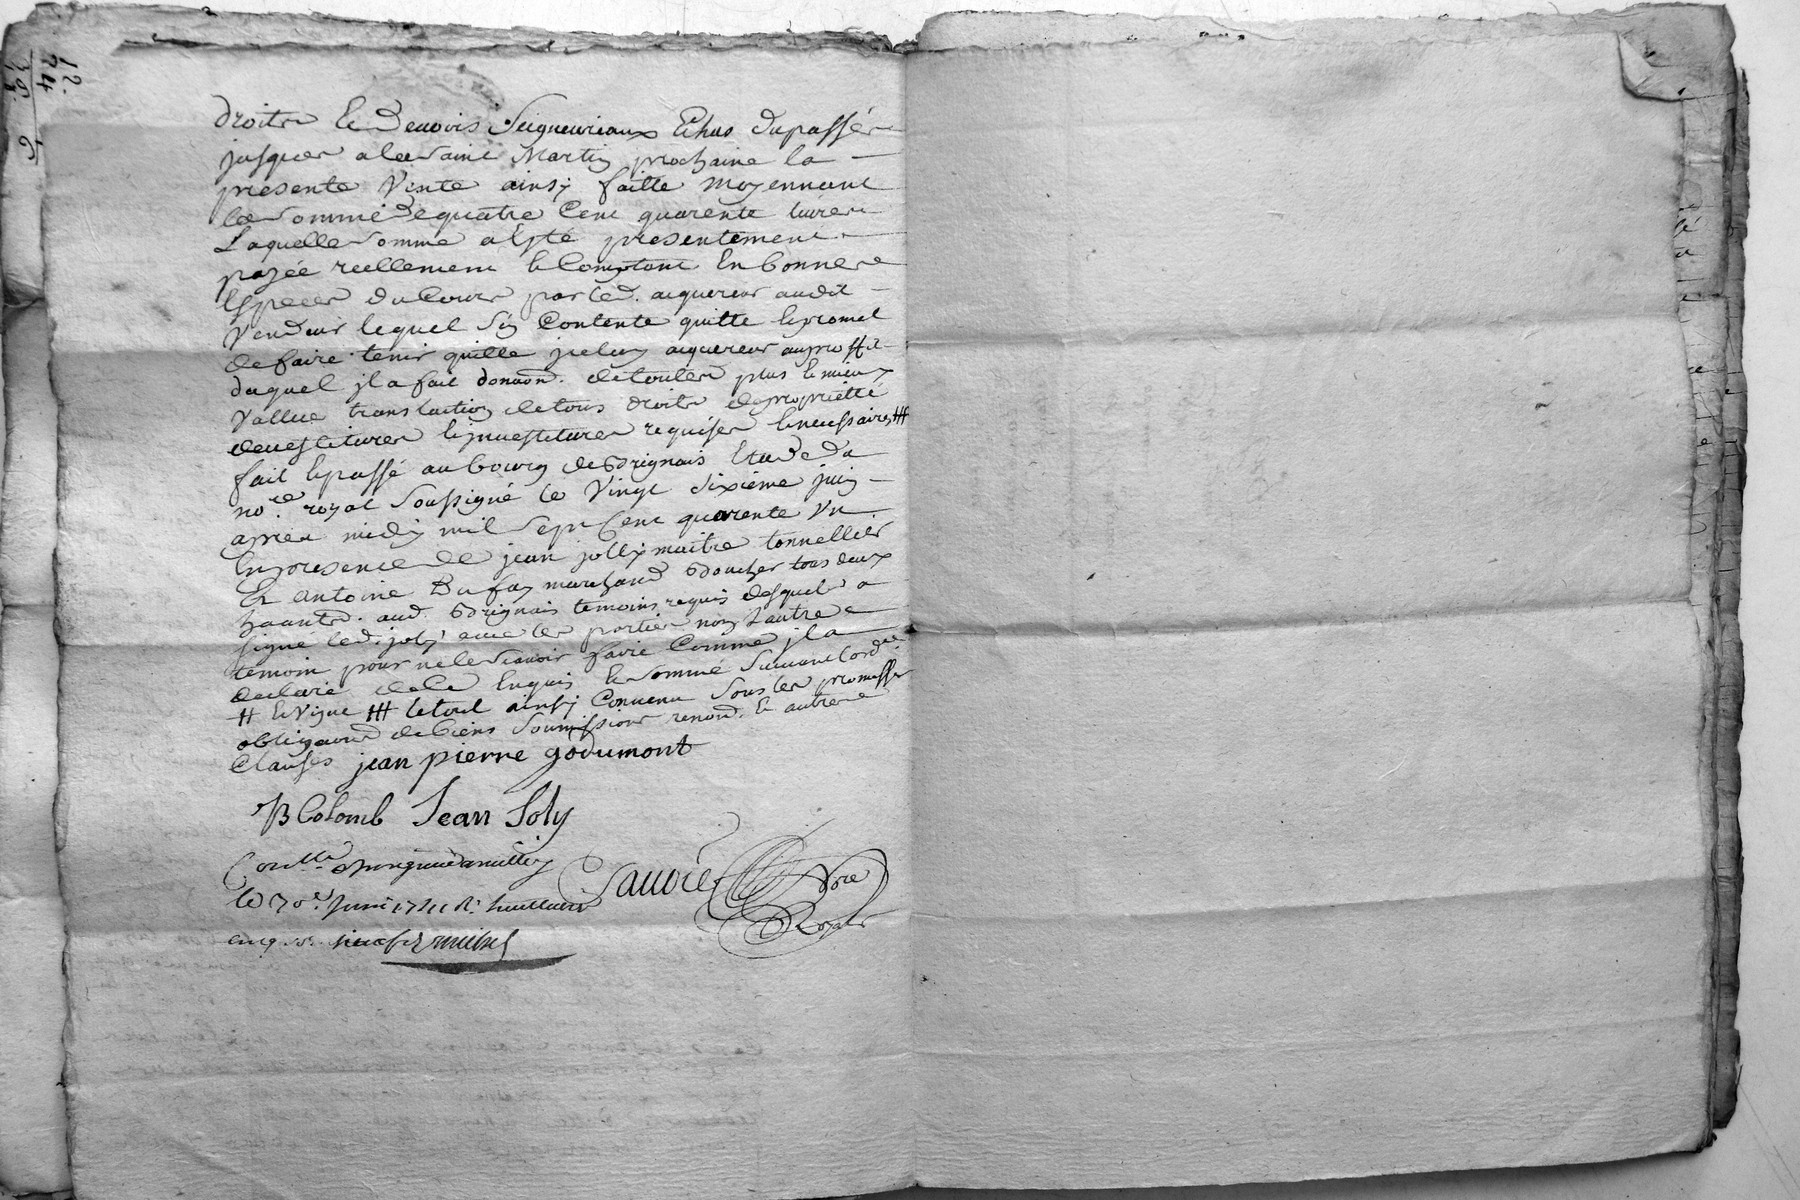 droits & devoirs Seigneuriaux Echus du passé
jusques a la saint Martin prochaine la
presente Vente ainsy faitte moyennant
la somme de quatre Cent quarente livres
Laquelle somme a esté presentement
payée reellement & Comptant En bonnes
Especes du Cours par led. aquereur audit
Vendeur lequel s'en Contente quitte & promet
de faire tenir quitte jceluy aquereur au proffit
duquel jl a fait donaon. de toutes plus & mieux
Vallue translation de tous droits de proprietté
devestitures & jnvestitures requises & necessaires ##
fait & passé au bourg de Brignais Etude du
nore. royal soussigné le Vingt sixieme juin
apres midy mil sept Cent quarente Un
En presence de jean jolly maitre tonnellier
Et antoine Dufay marchand Boucher tous deux
haants. aud. Brignais temoins requis desquels a
signé led. joly avec les parties non l'autre
temoin pour ne le scavoir faire Comme jl a
declaré de Ce Enquis & sommé suivant l'ordce
# & Vigne ## le tout ainsy Convenu sous les promesses
obligaons de biens soumissions renond. & autres
Clauses jean pierre godumont
B Colomb Jean Joly
Conlle
le 30e. juin 1741 R.
Sauvoie Nore
Royal